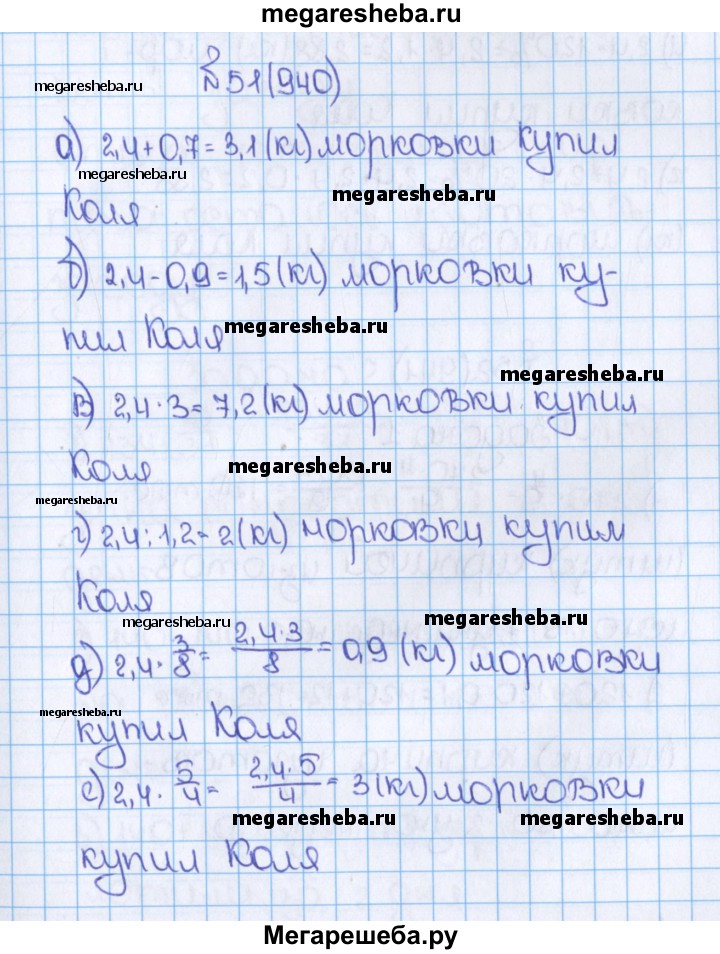 megaresheba.ru
№51(940)
megaresheba.ru
а) 2,4+0,7=3,1(кг) морковки купил
megaresheba.ru
megaresheba.ru
Коля
б) 2,4-0,9=1,5(кг) морковки ку-
пил Коля
megaresheba.ru
megaresheba.ru
в) 2,4·3=7,2(кг) морковки купил
Коля
megaresheba.ru
megaresheba.ru
г) 2,4:1,2=2(кг) морковки купил
Коля
megaresheba.ru
megaresheba.ru
д) 2,4·3/8=2,4·3/8=0,9(кг) морковки
megaresheba.ru
купил Коля
е) 2,4·5/4=2,4·5/4=3(кг) морковки
megaresheba.ru
megaresheba.ru
купил Коля
Мегарешеба.ру